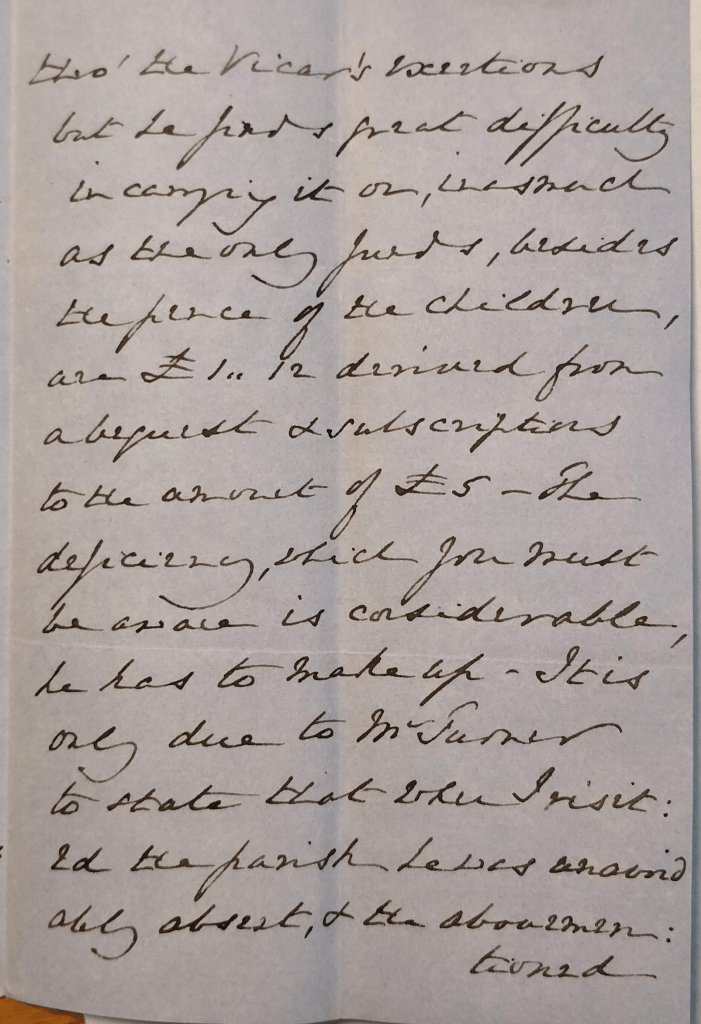 thro' the Vicar's exertions
but he finds great difficulty
in carrying it on, inasmuch
as the only funds, besides
the pence of the children,
are £1.. 12 derived from
a bequest & subscriptions
to the amount of £5 – The
deficiency, which you must
be aware is considerable,
he has to make up – It is
only due to Mr Turner
to state that when I visit:
ed the parish he was unavoid
ably absent, & the abovemen:
tioned